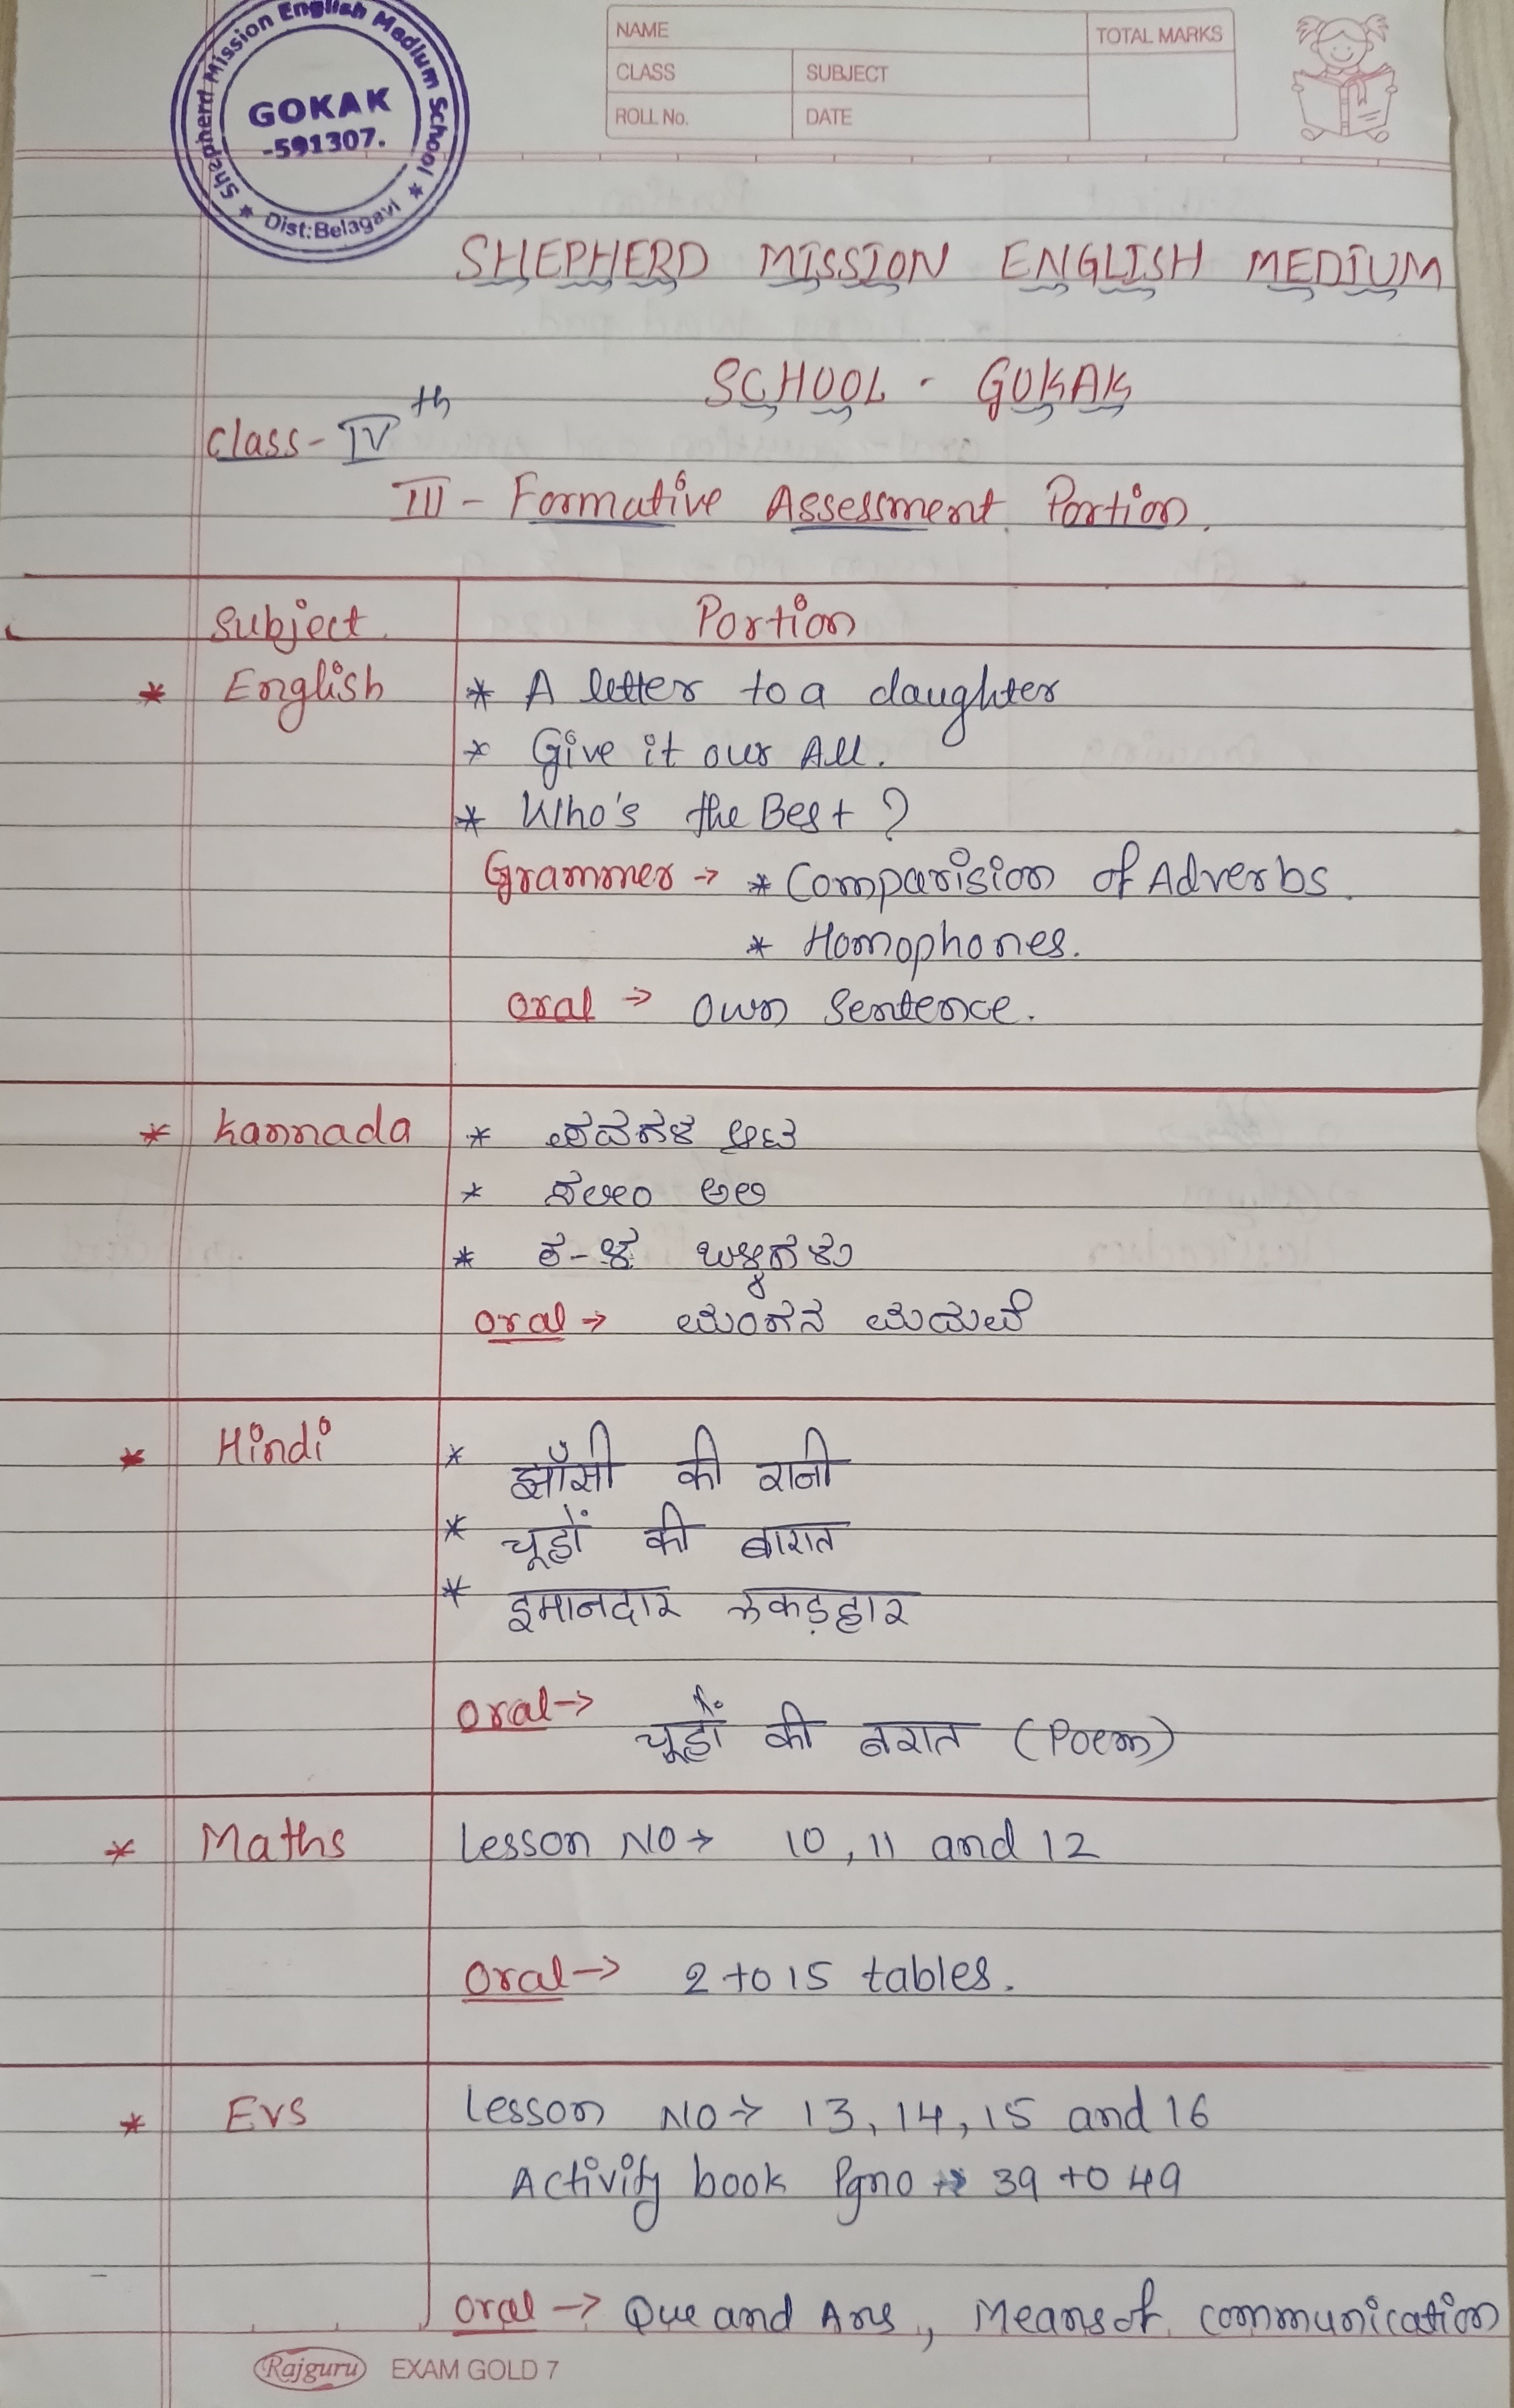 Shepherd Mission English Medium School
GOKAK
-591307.
Dist:Belagavi
NAME
TOTAL MARKS
CLASS
SUBJECT
ROLL No.
DATE
SHEPHERD MISSION ENGLISH MEDIUM
SCHOOL - GOKAK
Class - IVth
III - Formative Assessment Portion.
Subject Portion
* English * A letter to a daughter
* Give it our All.
* Who's the Best ?
Grammer → * Comparision of Adverbs.
* Homophones.
Oral → Own Sentence.
* Kannada *
* ಸಲೀಂ ಅಲಿ
* ಕ-ಳ
Oral → ಮಂಗನ ಮದುವೆ
* Hindi * झाँसी की रानी
* चूहों की बारात
* इमानदार लकड़हार
Oral → चूहों की बरात (Poem)
* Maths Lesson NO → 10, 11 and 12
Oral → 2 to 15 tables.
* Evs Lesson NO → 13, 14, 15 and 16
Activity book Pgno → 39 to 49
Oral → Que and Ans, Means of communication
Rajguru EXAM GOLD 7